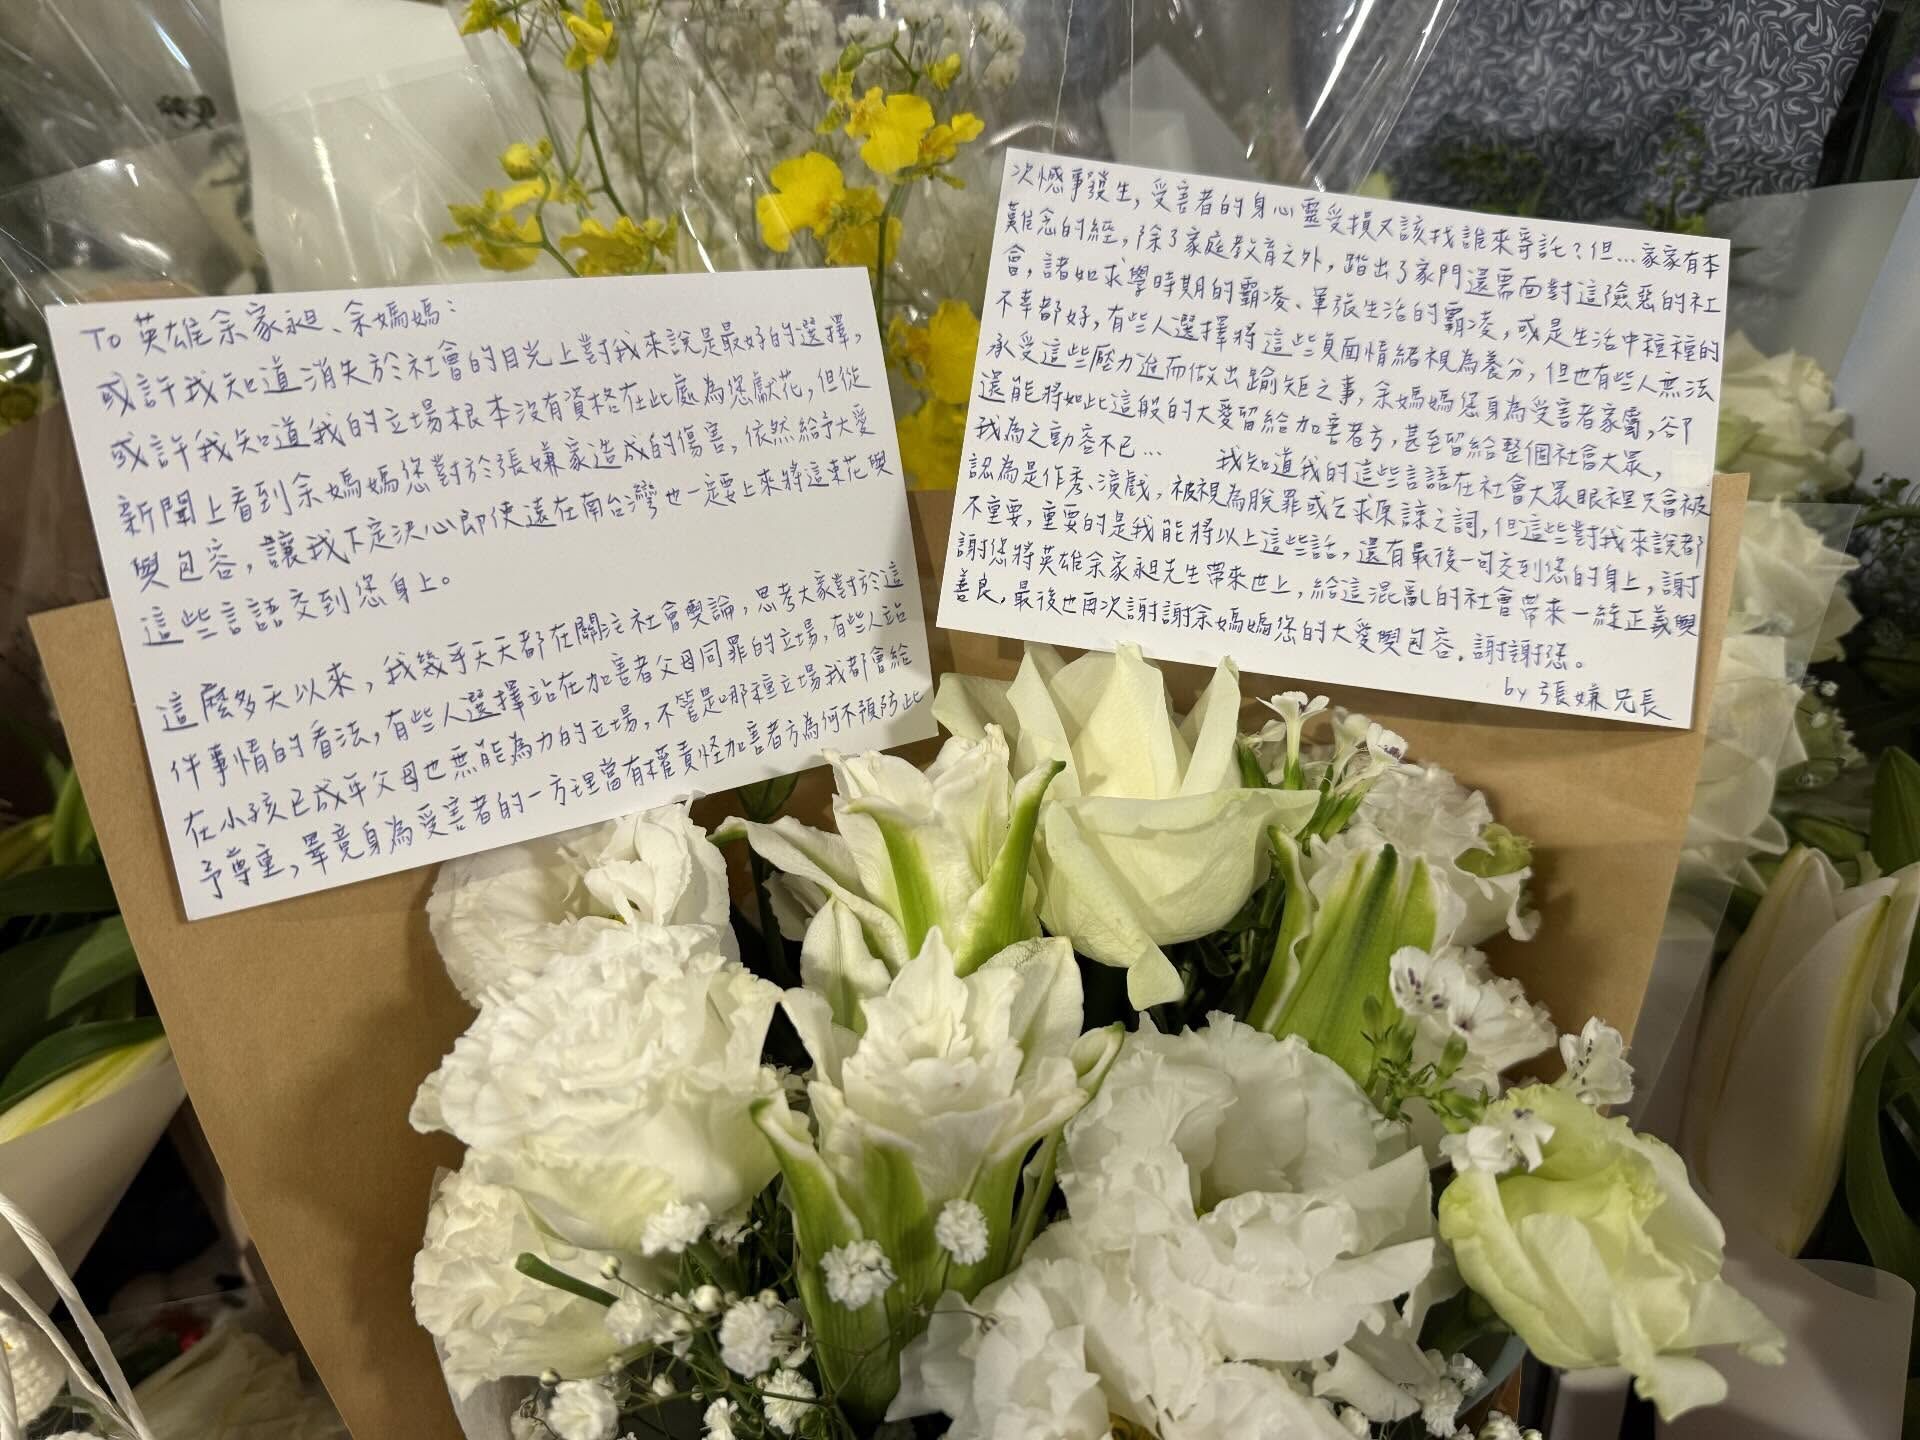 To 英雄余家昶、余媽媽：
或許我知道消失於社會的目光上對我來說是最好的選擇，
或許我知道我的立場根本沒有資格在此處為您獻花，但從
新聞上看到余媽媽您對於張嫌家造成的傷害，依然給予大愛
與包容，讓我下定決心即使遠在南台灣也一定要上來將這束花與
這些言語交到您身上。
這麼多天以來，我幾乎天天都在關注社會輿論，思考大家對於這
件事情的看法，有些人選擇站在加害者父母同罪的立場，有些人站
在小孩已成年父母也無能為力的立場，不管是哪種立場我都會給
予尊重，畢竟身為受害者的一方理當有權責怪加害者方為何不預防此
次憾事發生，受害者的身心靈受損又該找誰來寄託？但…家家有本
難念的經，除了家庭教育之外，踏出了家門還需面對這險惡的社
會，諸如求學時期的霸凌、軍旅生活的霸凌，或是生活中種種的
不幸都好，有些人選擇將這些負面情緒視為養分，但也有些人無法
承受這些壓力進而做出踰矩之事，余媽媽您身為受害者家屬，卻
還能將如此這般的大愛留給加害者方，甚至留給整個社會大眾，
我為之動容不已… 我知道我的這些言語在社會大眾眼裡只會被
認為是作秀、演戲，被視為脫罪或乞求原諒之詞，但這些對我來說都
不重要，重要的是我能將以上這些話，還有最後一句交到您的身上，謝
謝您將英雄余家昶先生帶來世上，給這混亂的社會帶來一線正義與
善良，最後也再次謝謝余媽媽您的大愛與包容，謝謝您。
by 張嫌兄長